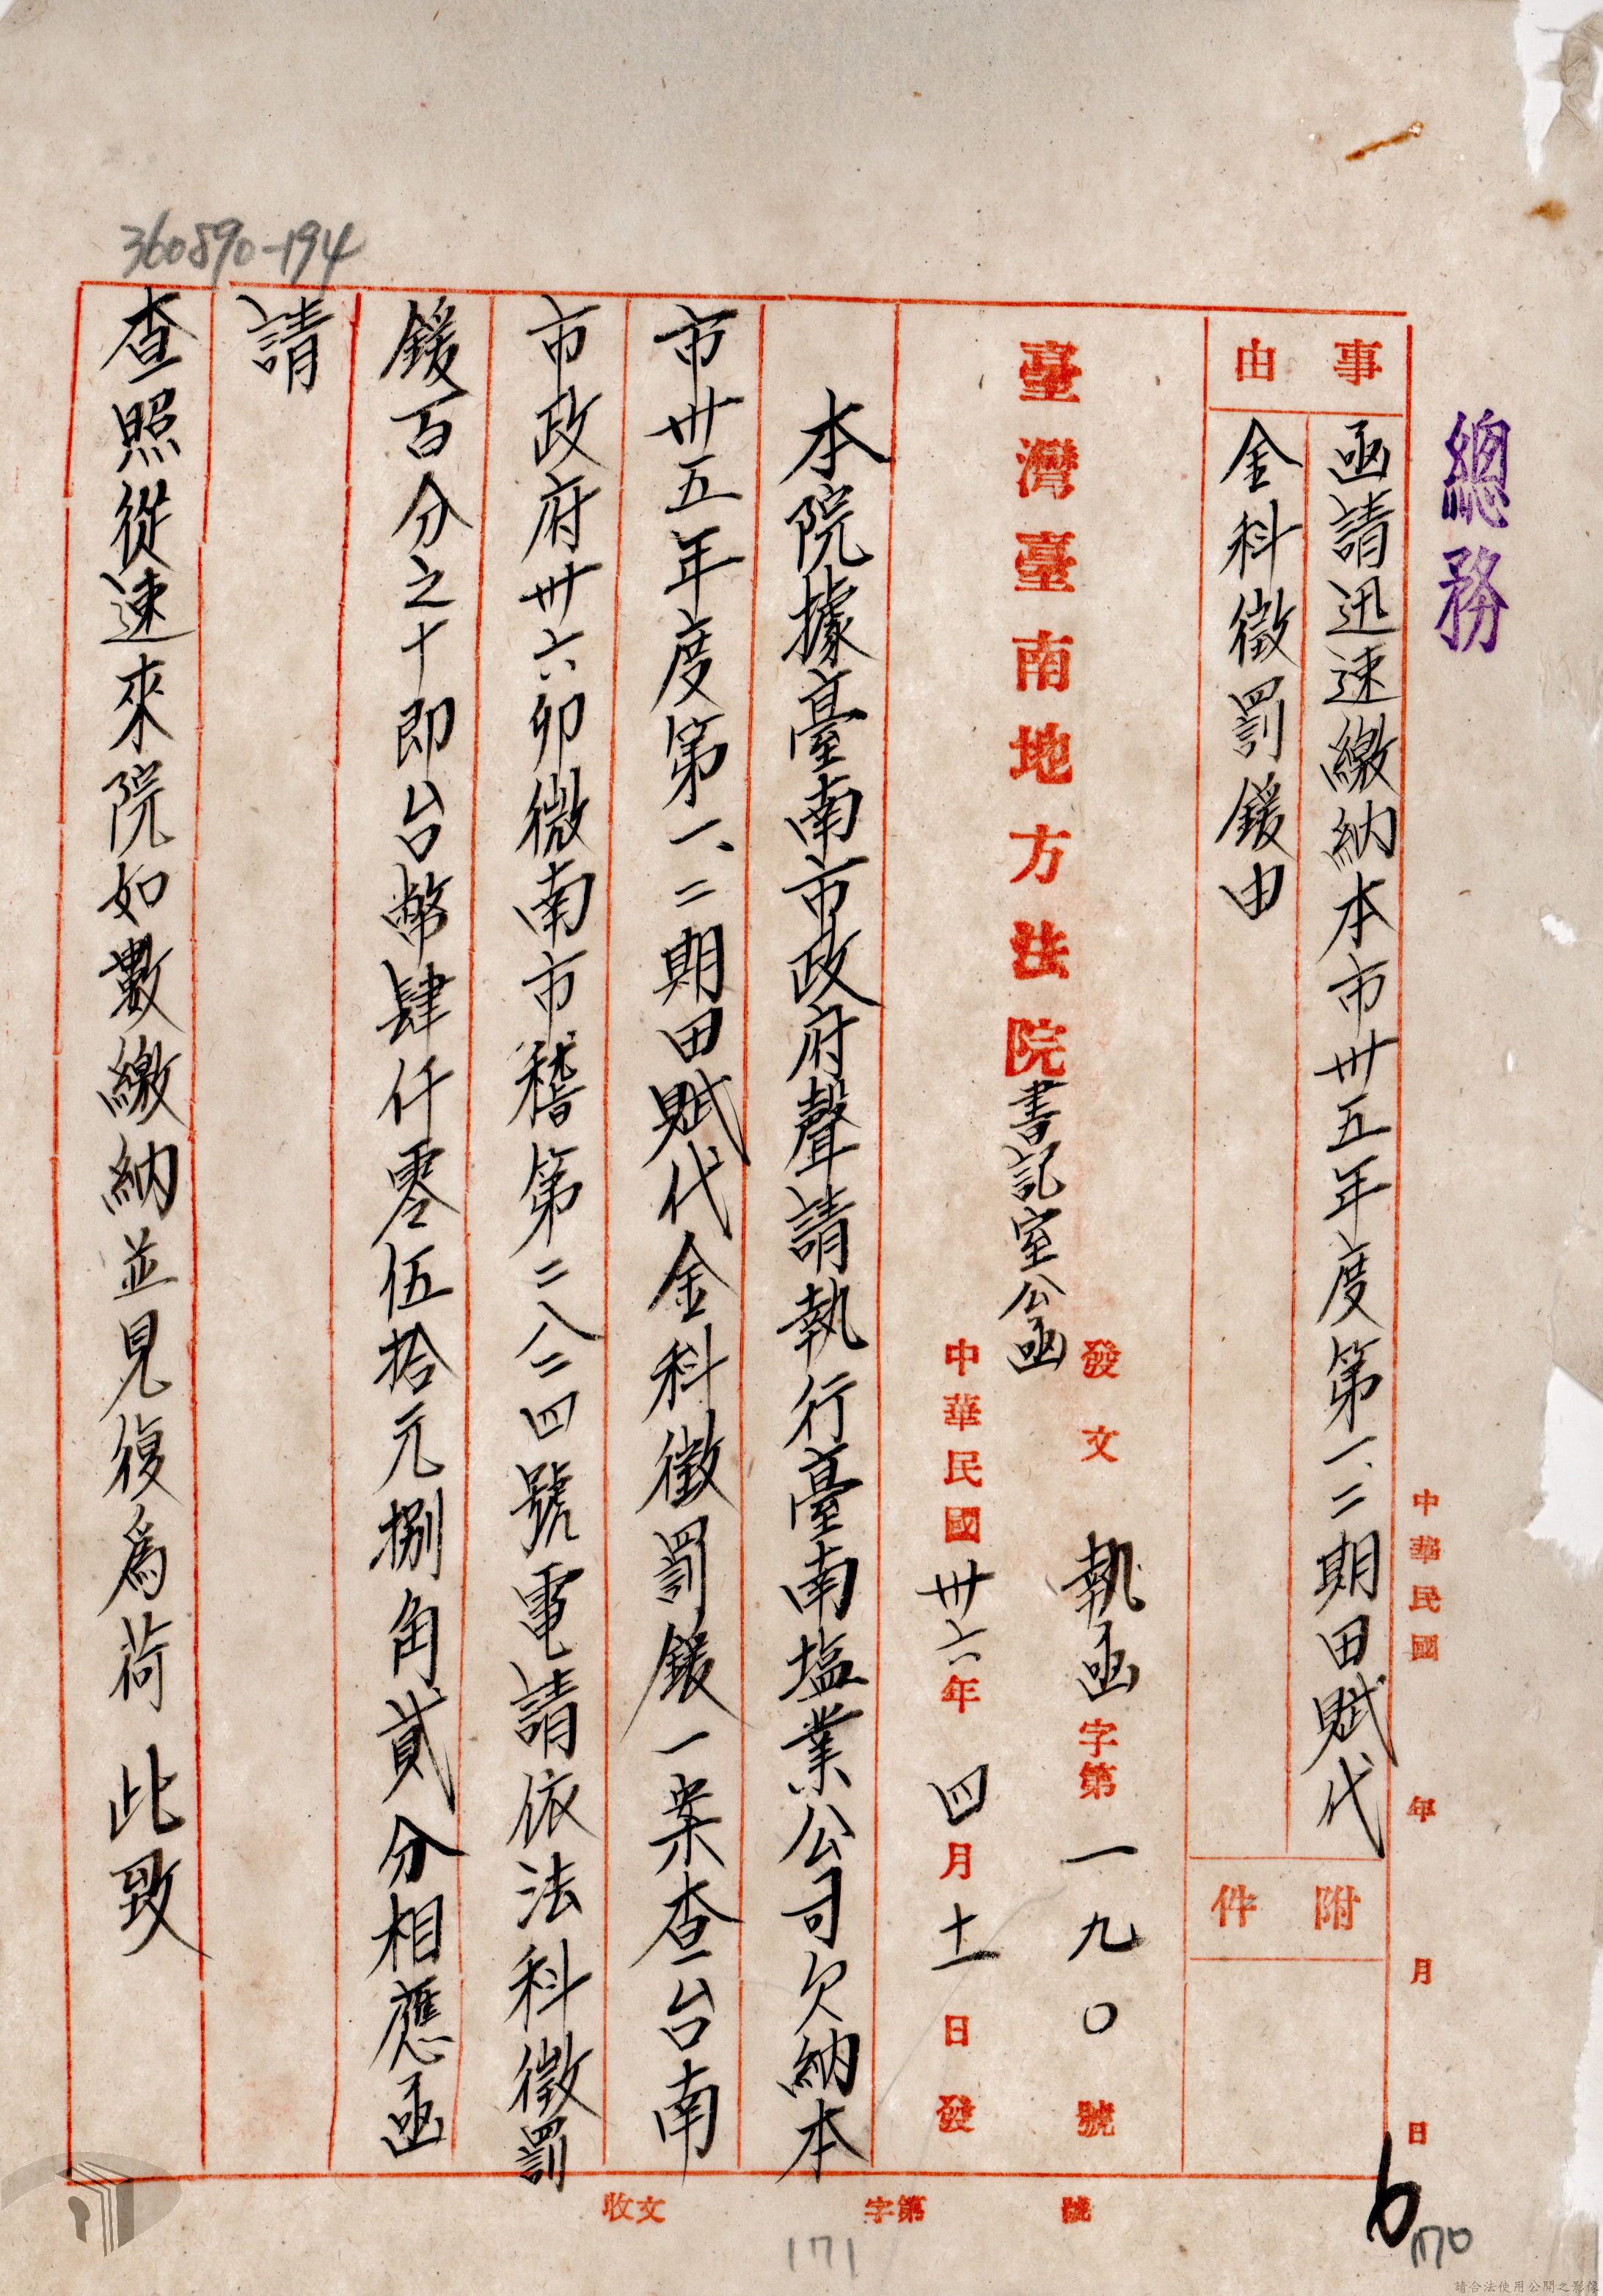 總務
中華民國　年　月　日
事由
函請迅速繳納本市卅五年度第一、二期田賦代
金科徵罰鍰由
附件
臺灣臺南地方法院書記室公函
發文　執函字第一九〇號
中華民國卅六年四月十一日發
本院據臺南市政府聲請執行臺南塩業公司欠納本
市卅五年度第一、二期田賦代金科徵罰鍰一案查台南
市政府卅六卯微南市稽第二八二四號電請依法科徵罰
鍰百分之十即台幣肆仟零伍拾元捌角貳分相應函
請
查照從速來院如數繳納並見復為荷　此致
360890-194
收文　字第　號
6
170
171
請合法使用公開之影像